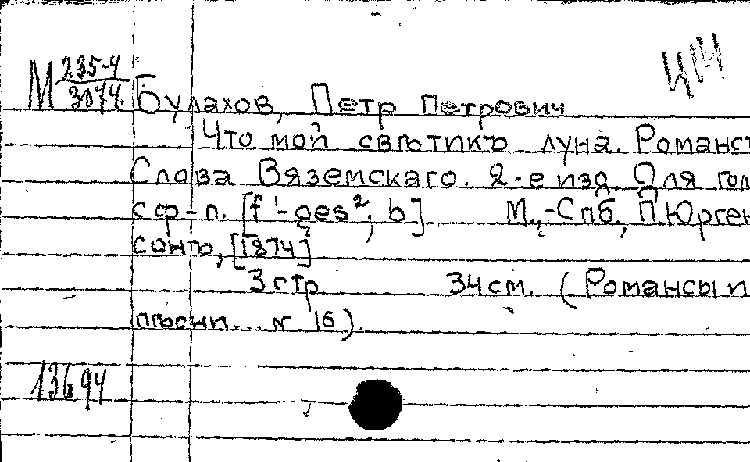 М 235-4
3074
ЦМ
Булахов, Петр Петрович
Что мой светикъ луна. Романсъ
Слова Вяземскаго. 2-е изд. Для гол
с ф-п. [f¹-ges²; b] М.-Спб, П. Юрген
сонъ, [1874]
3 стр 34 см. (Романсы и
песни. № 16).
13694